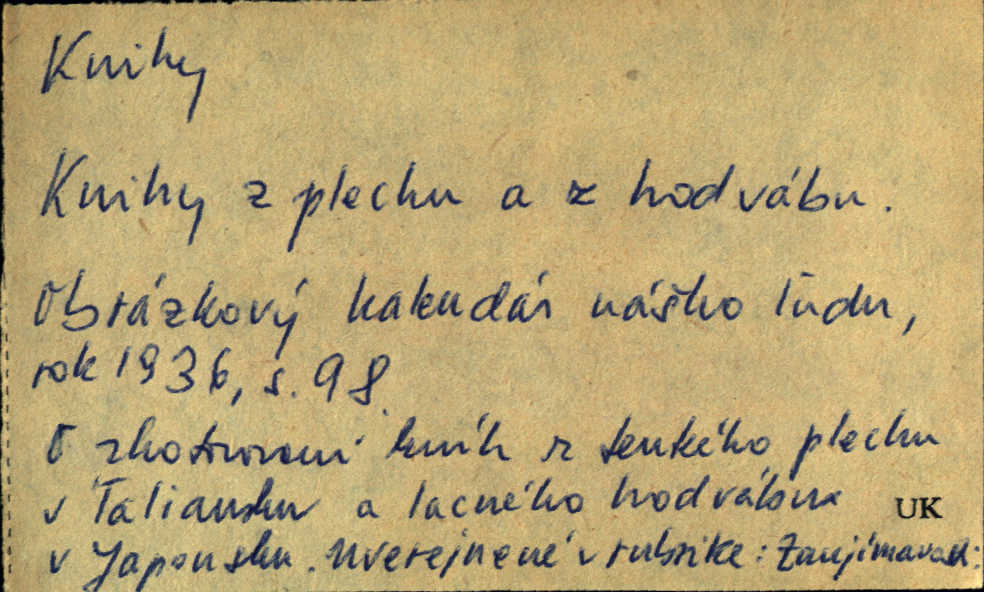 Knihy
Knihy z plechu a z hodvábu.
Obrázkový kalendár nášho ľudu,
rok 1936, s. 98.
O zhotovovaní kníh z tenkého plechu
v Taliansku a lacného hodvábu
UK
v Japonsku. Uverejnené v rubrike: Zaujímavosti